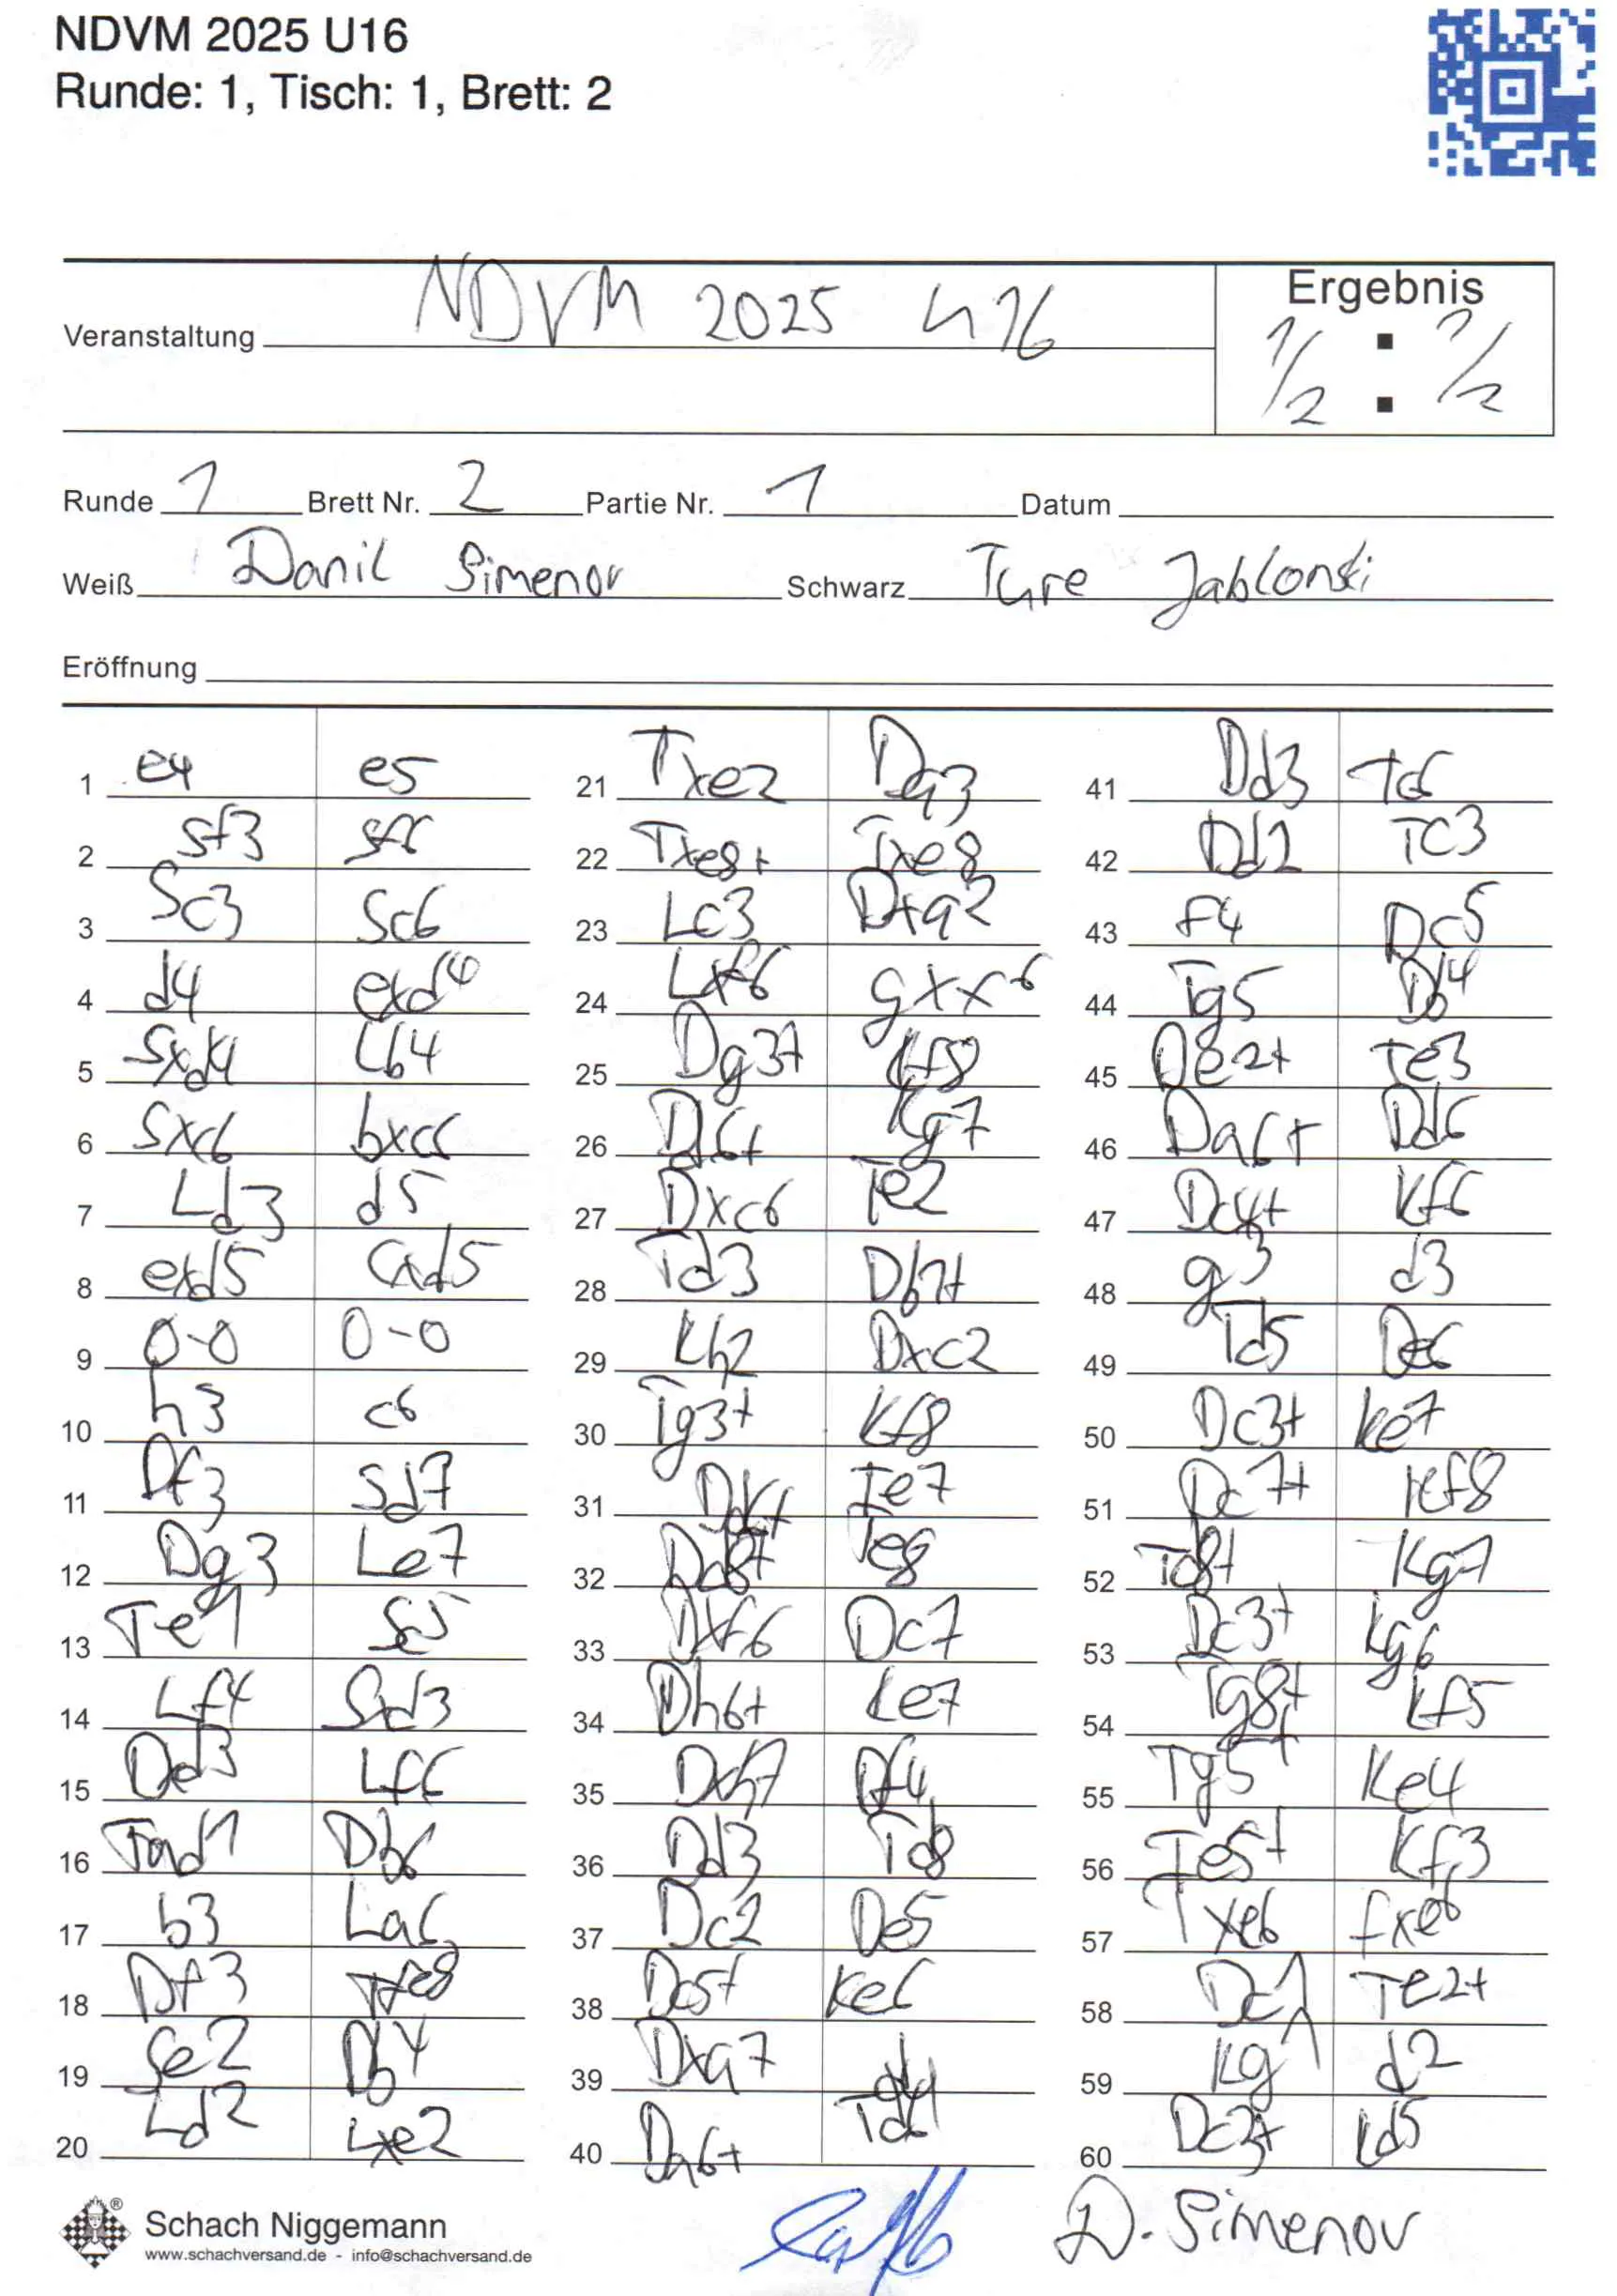 NDVM 2025 U16
Runde: 1, Tisch: 1, Brett: 2
Veranstaltung NDVM 2025 U16
Ergebnis
1/2 : 1/2
Runde 1 Brett Nr. 2 Partie Nr. 1 Datum
Weiß Danil Simenov Schwarz Ture Jablonski
Eröffnung
1 e4 e5
2 Sf3 Sf6
3 Sc3 Sc6
4 d4 exd4
5 Sxd4 Lb4
6 Sxc6 bxc6
7 Ld3 d5
8 exd5 cxd5
9 0-0 0-0
10 h3 c6
11 Df3 Sd7
12 Dg3 Le7
13 Te1 Sc5
14 Lf4 Sxd3
15 Dxd3 Lf6
16 Tad1 Db6
17 b3 La6
18 Df3 Tfe8
19 Se2 Db4
20 Ld2 Lxe2
21 Txe2 Da3
22 Txe8+ Txe8
23 Lc3 Dxa2
24 Lxf6 gxf6
25 Dg3+ Kf8
26 Dd6+ Kg7
27 Dxc6 Te2
28 Td3 Db1+
29 Kh2 Dxc2
30 Tg3+ Kf8
31 Dd6+ Te7
32 Dd8+ Te8
33 Dxf6 Dc7
34 Dh6+ Ke7
35 Dxh7 Df4
36 Dd3 Td8
37 Dc2 De5
38 Dc5+ Ke6
39 Dxa7 d4
40 Da6+ Td6
41 Dd3 Tc6
42 Dd2 Tc3
43 f4 Dc5
44 Tg5 Db4
45 De2+ Te3
46 Da6+ Dd6
47 Dc4+ Kf6
48 g3 d3
49 Td5 De6
50 Dc3+ Ke7
51 Dc7+ Kf8
52 Td8+ Kg7
53 Dc3+ Kg6
54 Tg8+ Kf5
55 Tg5+ Ke4
56 Te5+ Kf3
57 Txe6 fxe6
58 Dc1 Te2+
59 Kg1 d2
60 Dc3+ Ld5
Schach Niggemann
www.schachversand.de - info@schachversand.de
D. Simenov